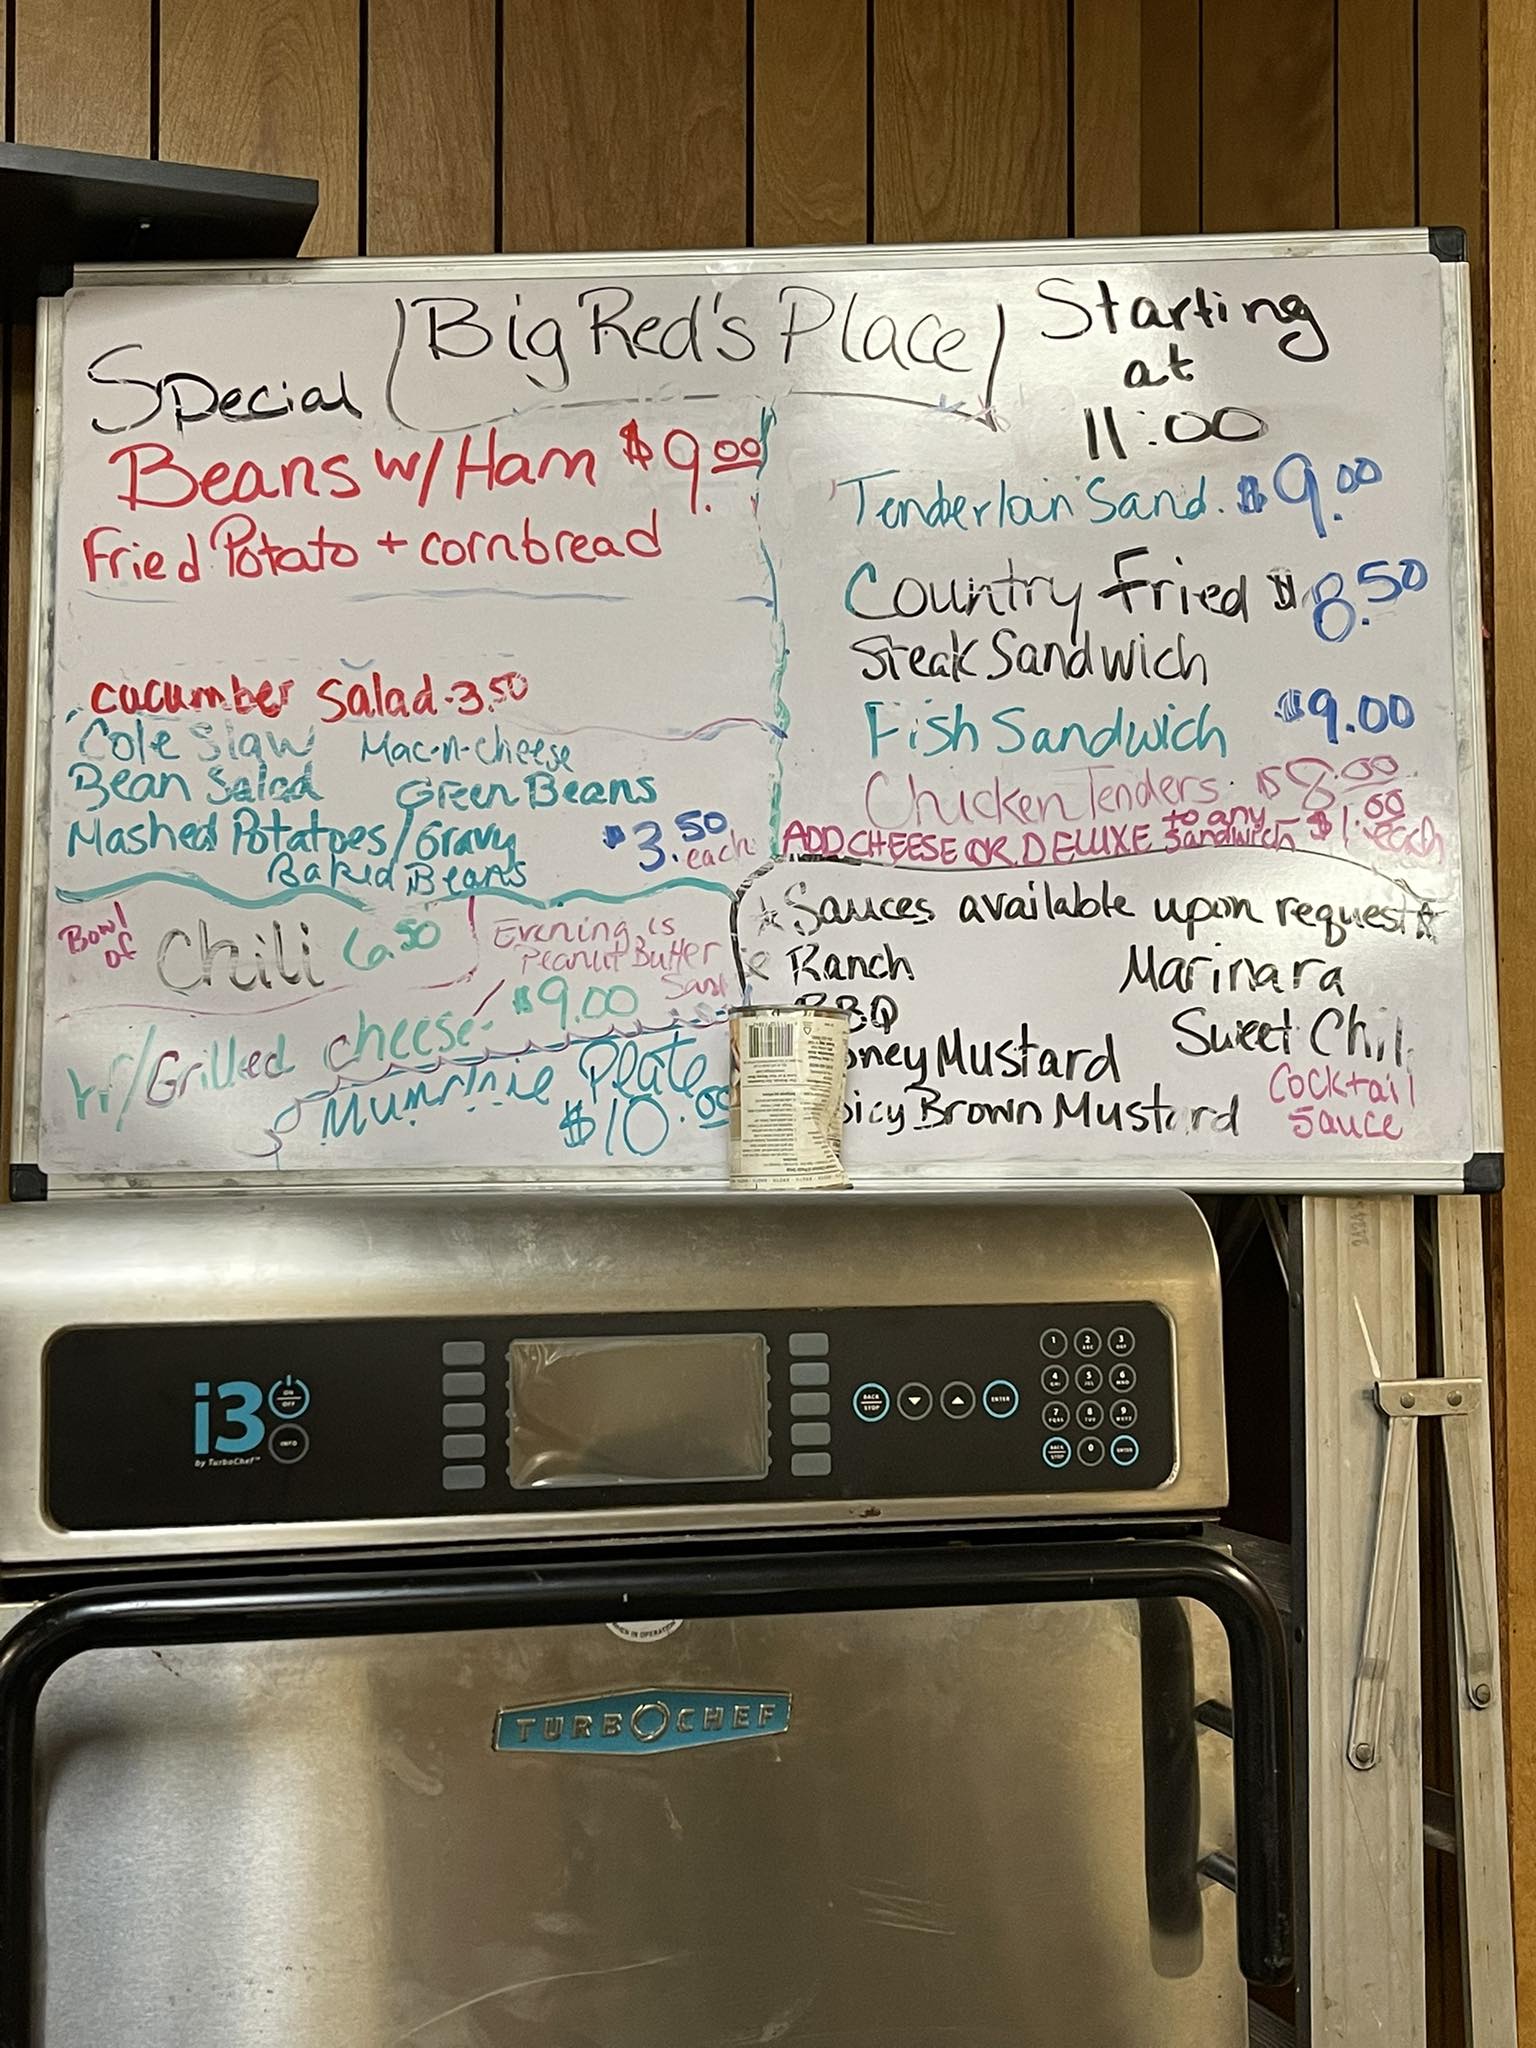 Big Red's Place
Special
Beans w/Ham $9.00
Fried Potato + cornbread
cucumber salad-3.50
Cole Slaw Mac-n-cheese
Bean Salad Green Beans
Mashed Potatoes/Gravy $3.50 each
Baked Beans
Bowl of Chili 6.50
Evening is
Peanut Butter
w/Grilled cheese- $9.00
Plate
$10.00
Starting
at
11:00
Tenderloin Sand. $9.00
Country Fried $8.50
Steak Sandwich
Fish Sandwich $9.00
Chicken Tenders $8.00
ADD CHEESE OR DELUXE to any Sandwich - $1.00 each
Sauces available upon request
Ranch Marinara
BBQ Sweet Chil
oney Mustard Cocktail
icy Brown Mustard Sauce
i3
by TurboChef™
ON
OFF
INFO
BACK
STOP
ENTER
1 2 ABC 3 DEF
4 GHI 5 JKL 6 MNO
7 PQRS 8 TUV 9 WXYZ
BACK
STOP
0
ENTER
TURBOCHEF